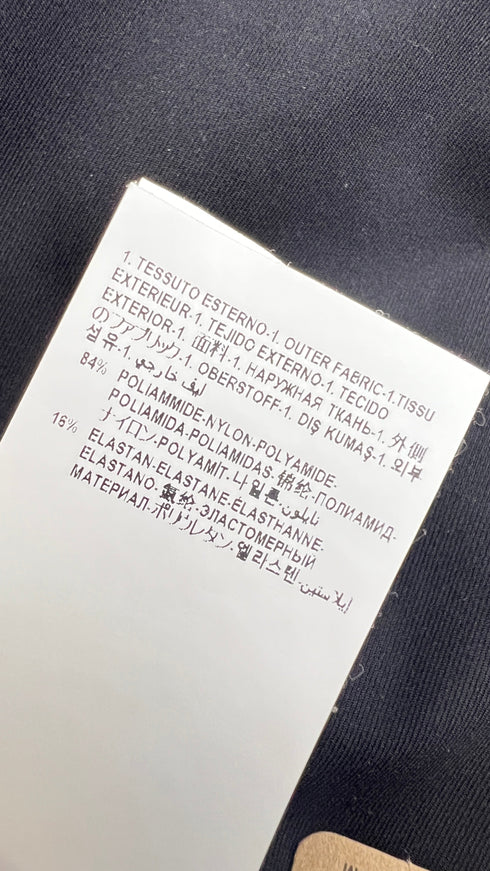 1. TESSUTO ESTERNO-1. OUTER FABRIC-1.TISSU
EXTERIEUR-1. TEJIDO EXTERNO-1. TECIDO
EXTERIOR-1. 面料-1. НАРУЖНАЯ ТКАНЬ-1. 外側
のファブリック-1. OBERSTOFF-1. DIŞ KUMAŞ-1. 외부
섬유-1. ليف خارجي
84% POLIAMMIDE-NYLON-POLYAMIDE-
POLIAMIDA-POLIAMIDAS-锦纶-ПОЛИАМИД-
ナイロン-POLYAMIT-나일론-نايلون
16% ELASTAN-ELASTANE-ELASTHANNE-
ELASTANO-氨纶-ЭЛАСТОМЕРНЫЙ
МАТЕРИАЛ-ポリウレタン-엘라스텐-ايلاستين